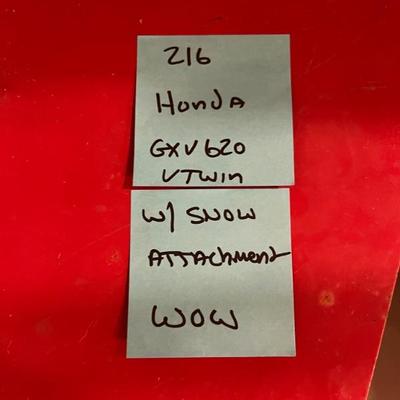 216
Honda
GXV620
VTwin
w/ SNOW
ATTAchment
WOW